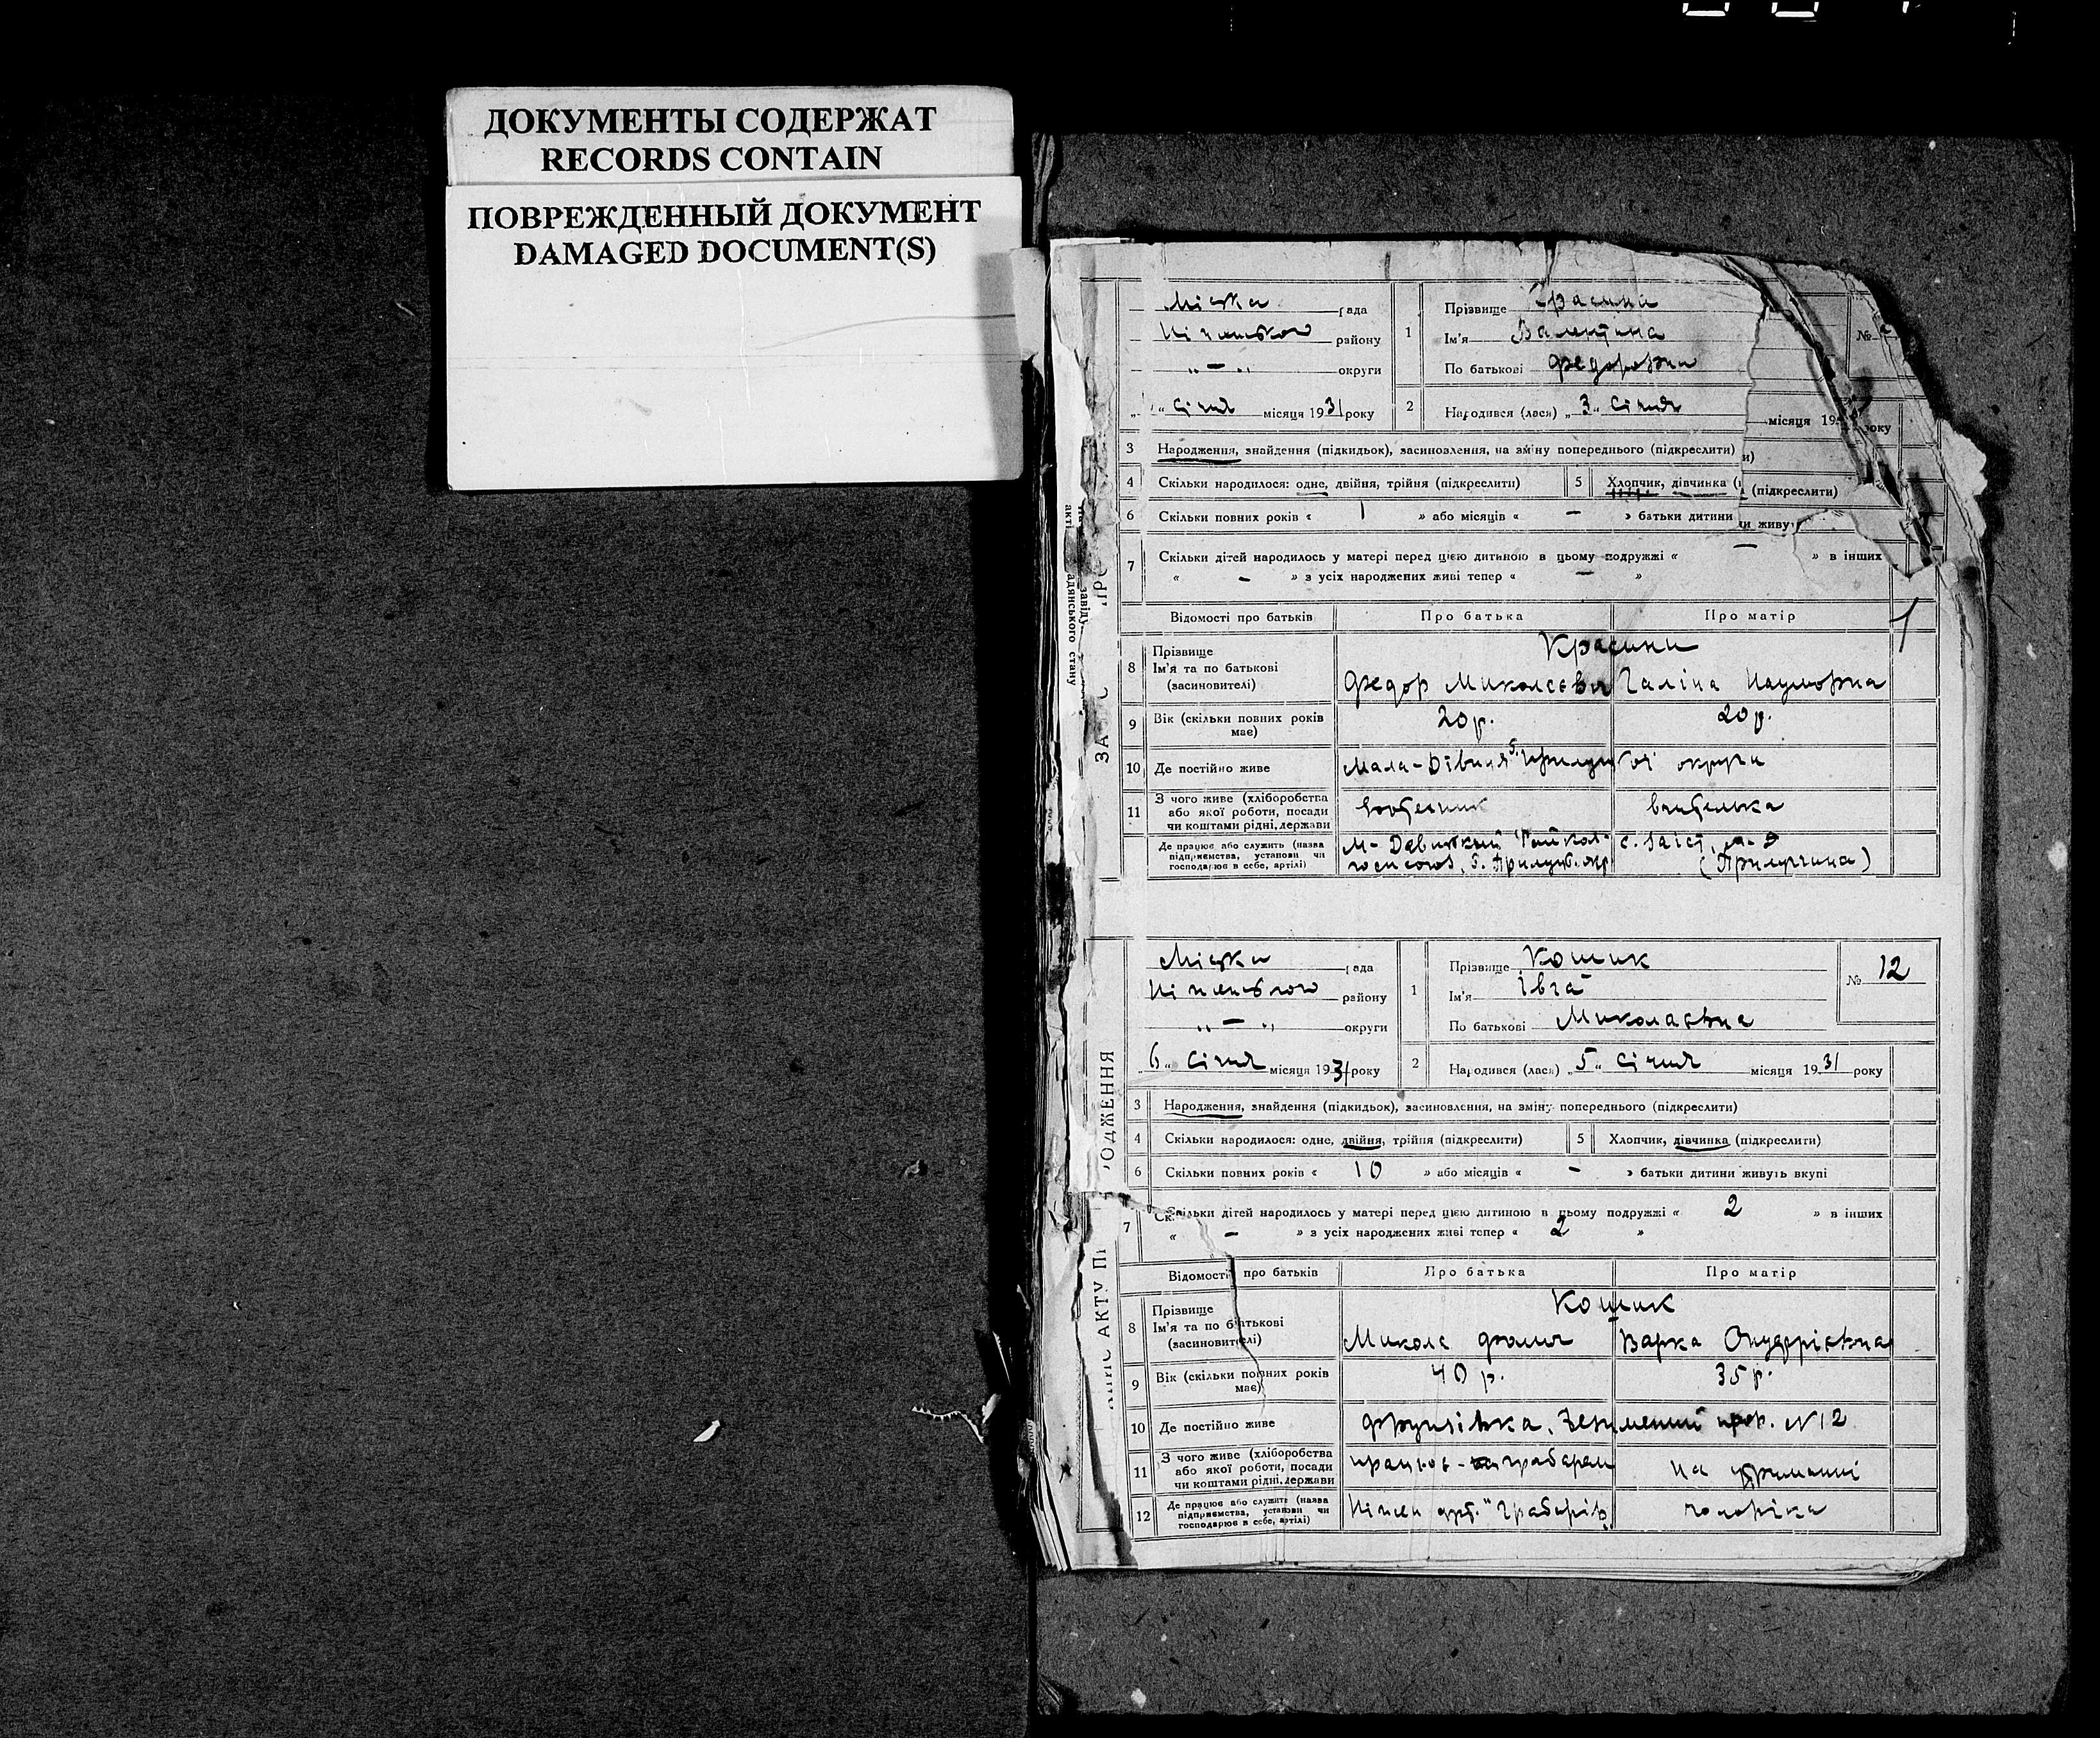 ДОКУМЕНТЫ СОДЕРЖАТ
RECORDS CONTAIN
ПОВРЕЖДЕННЫЙ ДОКУМЕНТ
DAMAGED DOCUMENT(S)
Міська рада
району
„ — „ округи
січня місяця 1931 року
1 Прізвище
Ім'я Валентина
По батькові Федоровна
№
2 Народився (лася) „3„ січня місяця 19 року
3 Народження, знайдення (підкидьок), засиновлення, на зміну попереднього (підкреслити)
4 Скільки народилося: одне, двійня, трійня (підкреслити) 5 Хлопчик, дівчинка (підкреслити)
6 Скільки повних років « 1 » або місяців « — » батьки дитини живу
7 Скільки дітей народилось у матері перед цією дитиною в цьому подружжі « — » в інших
« — » з усіх народжених живі тепер « — »
Відомості про батьків Про батька Про матір
8 Прізвище Красини
Ім'я та по батькові
(засиновителі) Федор Галіна Наумовна
9 Вік (скільки повних років має) 20 р. 20 р.
10 Де постійно живе Мала-Дівиця округи
11 З чого живе (хліборобства
або якої роботи, посади
чи коштами рідні, держави
Де працює або служить (назва
підприємства, установи чи
господарює в себе, артілі) (Прилуччина)
завіду
адянського стану
Міська рада
району
„ — „ округи
6 „ січня місяця 1931 року
1 Прізвище Кошик
Ім'я Івга
По батькові Миколаєвна
№ 12
2 Народився (лася) „5„ січня місяця 1931 року
3 Народження, знайдення (підкидьок), засиновлення, на зміну попереднього (підкреслити)
4 Скільки народилося: одне, двійня, трійня (підкреслити) 5 Хлопчик, дівчинка (підкреслити)
6 Скільки повних років « 10 » або місяців « — » батьки дитини живуть вкупі
7 Скільки дітей народилось у матері перед цією дитиною в цьому подружжі « 2 » в інших
« — » з усіх народжених живі тепер « 2 »
Відомості про батьків Про батька Про матір
8 Прізвище Кошик
Ім'я та по батькові
(засиновителі) Микола Варка
9 Вік (скільки повних років має) 40 р. 35 р.
10 Де постійно живе № 12
11 З чого живе (хліборобства
або якої роботи, посади
чи коштами рідні, держави працює - грабарем на утриманні
12 Де працює або служить (назва
підприємства, установи чи
господарює в себе, артілі) "Грабарів" чоловіка
ОДЖЕННЯ
АКТУ